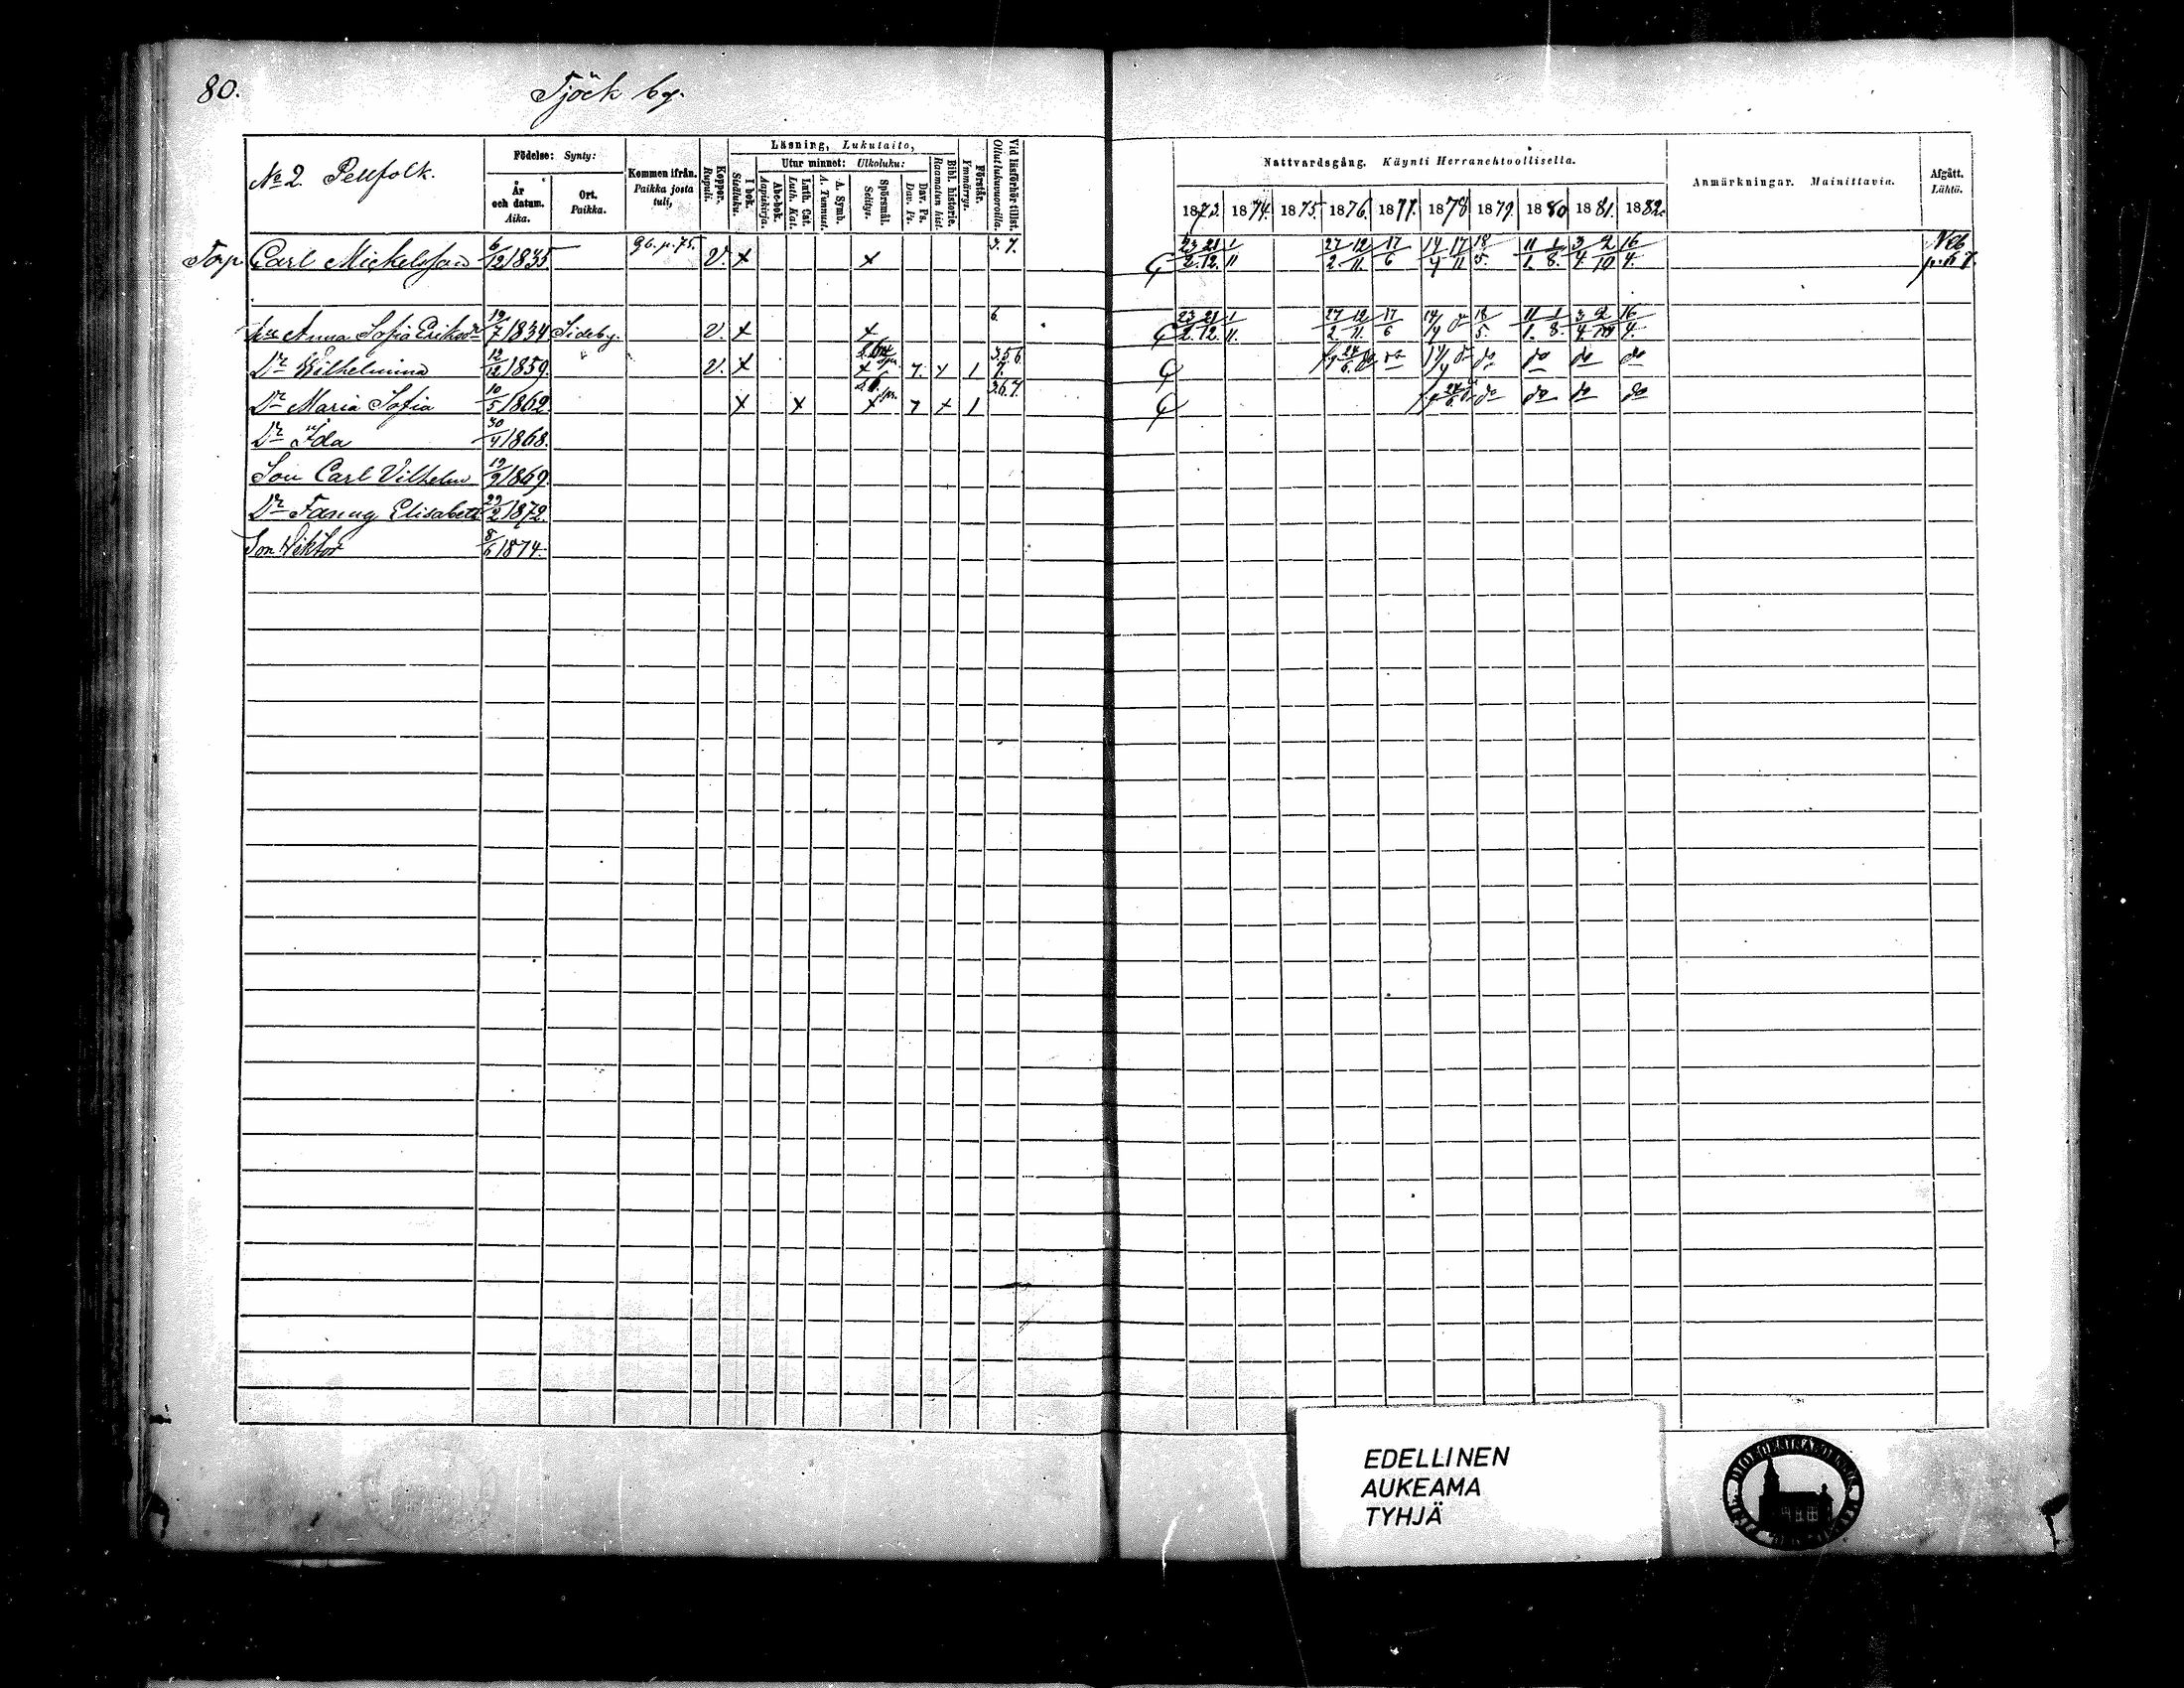 80. Tjöck by.
No 2. Pellfolk.
Födelse: Synty:
År och datum. Aika.
Ort. Paikka.
Kommen ifrån. Paikka josta tuli,
Koppor. Rupuli.
Läsning, Lukutaito,
I bok. Sisäluku.
Utur minnet: Ulkoluku:
Abc-bok. Aapiskirja.
Luth. Cat. Luth. Kat.
A. Symb. A. Tunnust.
Spörsmål. Selitys.
Dav. Ps. Dav. Ps.
Bibl. historie. Raamatun hist.
Förstår. Ymmärrys.
Vid läsförhör tillst. Ollut lukuvuoroilla.
Nattvardsgång. Käynti Herranehtoollisella.
1873. 1874. 1875. 1876. 1877. 1878 1879. 1880 1881. 1882.
Anmärkningar. Mainittavia.
Afgått. Lähtö.
Torp Carl Mickelsson 6/12 1835 V. x x 3. 7. 23/2. 21/12. 1/11 27/2. 12/11. 17/6 14/4 17/11 18/5. 11/1. 1/8. 3/4. 2/10 16/4.
Anna Sofia 19/7 1834 Sideby. V. x x 6. 23/2. 21/12. 1/11. 27/2. 12/11. 17/6 14/4 18/5. 11/1. 1/8. 3/4. 16/4.
Dr Wilhelmina 12/12 1859. " V. x x 7. x 1 3.5.6. 7. do do do do
Dr Maria Sofia 10/5 1862. x x x 7 x 1 3.6.7. do do do do
Dr Ida 30/4 1868.
Son Carl Vilhelm 19/9 1869.
Dr Fanny Elisabeth 1872.
Son Viktor 8/6 1874.
EDELLINEN
AUKEAMA
TYHJÄ